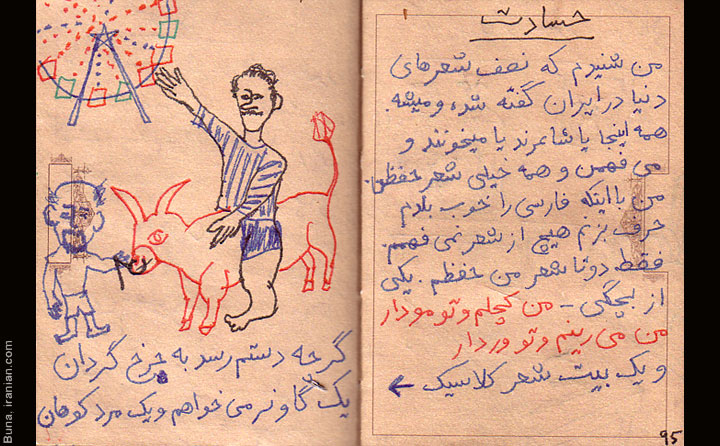 حسادت
من شنیدم که نصف شعرهای
دنیا در ایران گفته شده و میشه.
همه اینجا یا شاعرند یا میخونند و
می فهمن و همه خیلی شعر حفظن.
من با اینکه فارسی را خوب بلدم
حرف بزنم هیچ از شعر نمی فهمم.
فقط دو تا شعر من حفظم. یکی
از بچگی - من کچلم و تو مودار
من می رینم و تو وردار
و یک بیت شعر کلاسیک ←
95
گرچه دستم رسد به چرخ گردان
یک گاو نر می خواهم و یک مرد کوهان
Buna, iranian.com